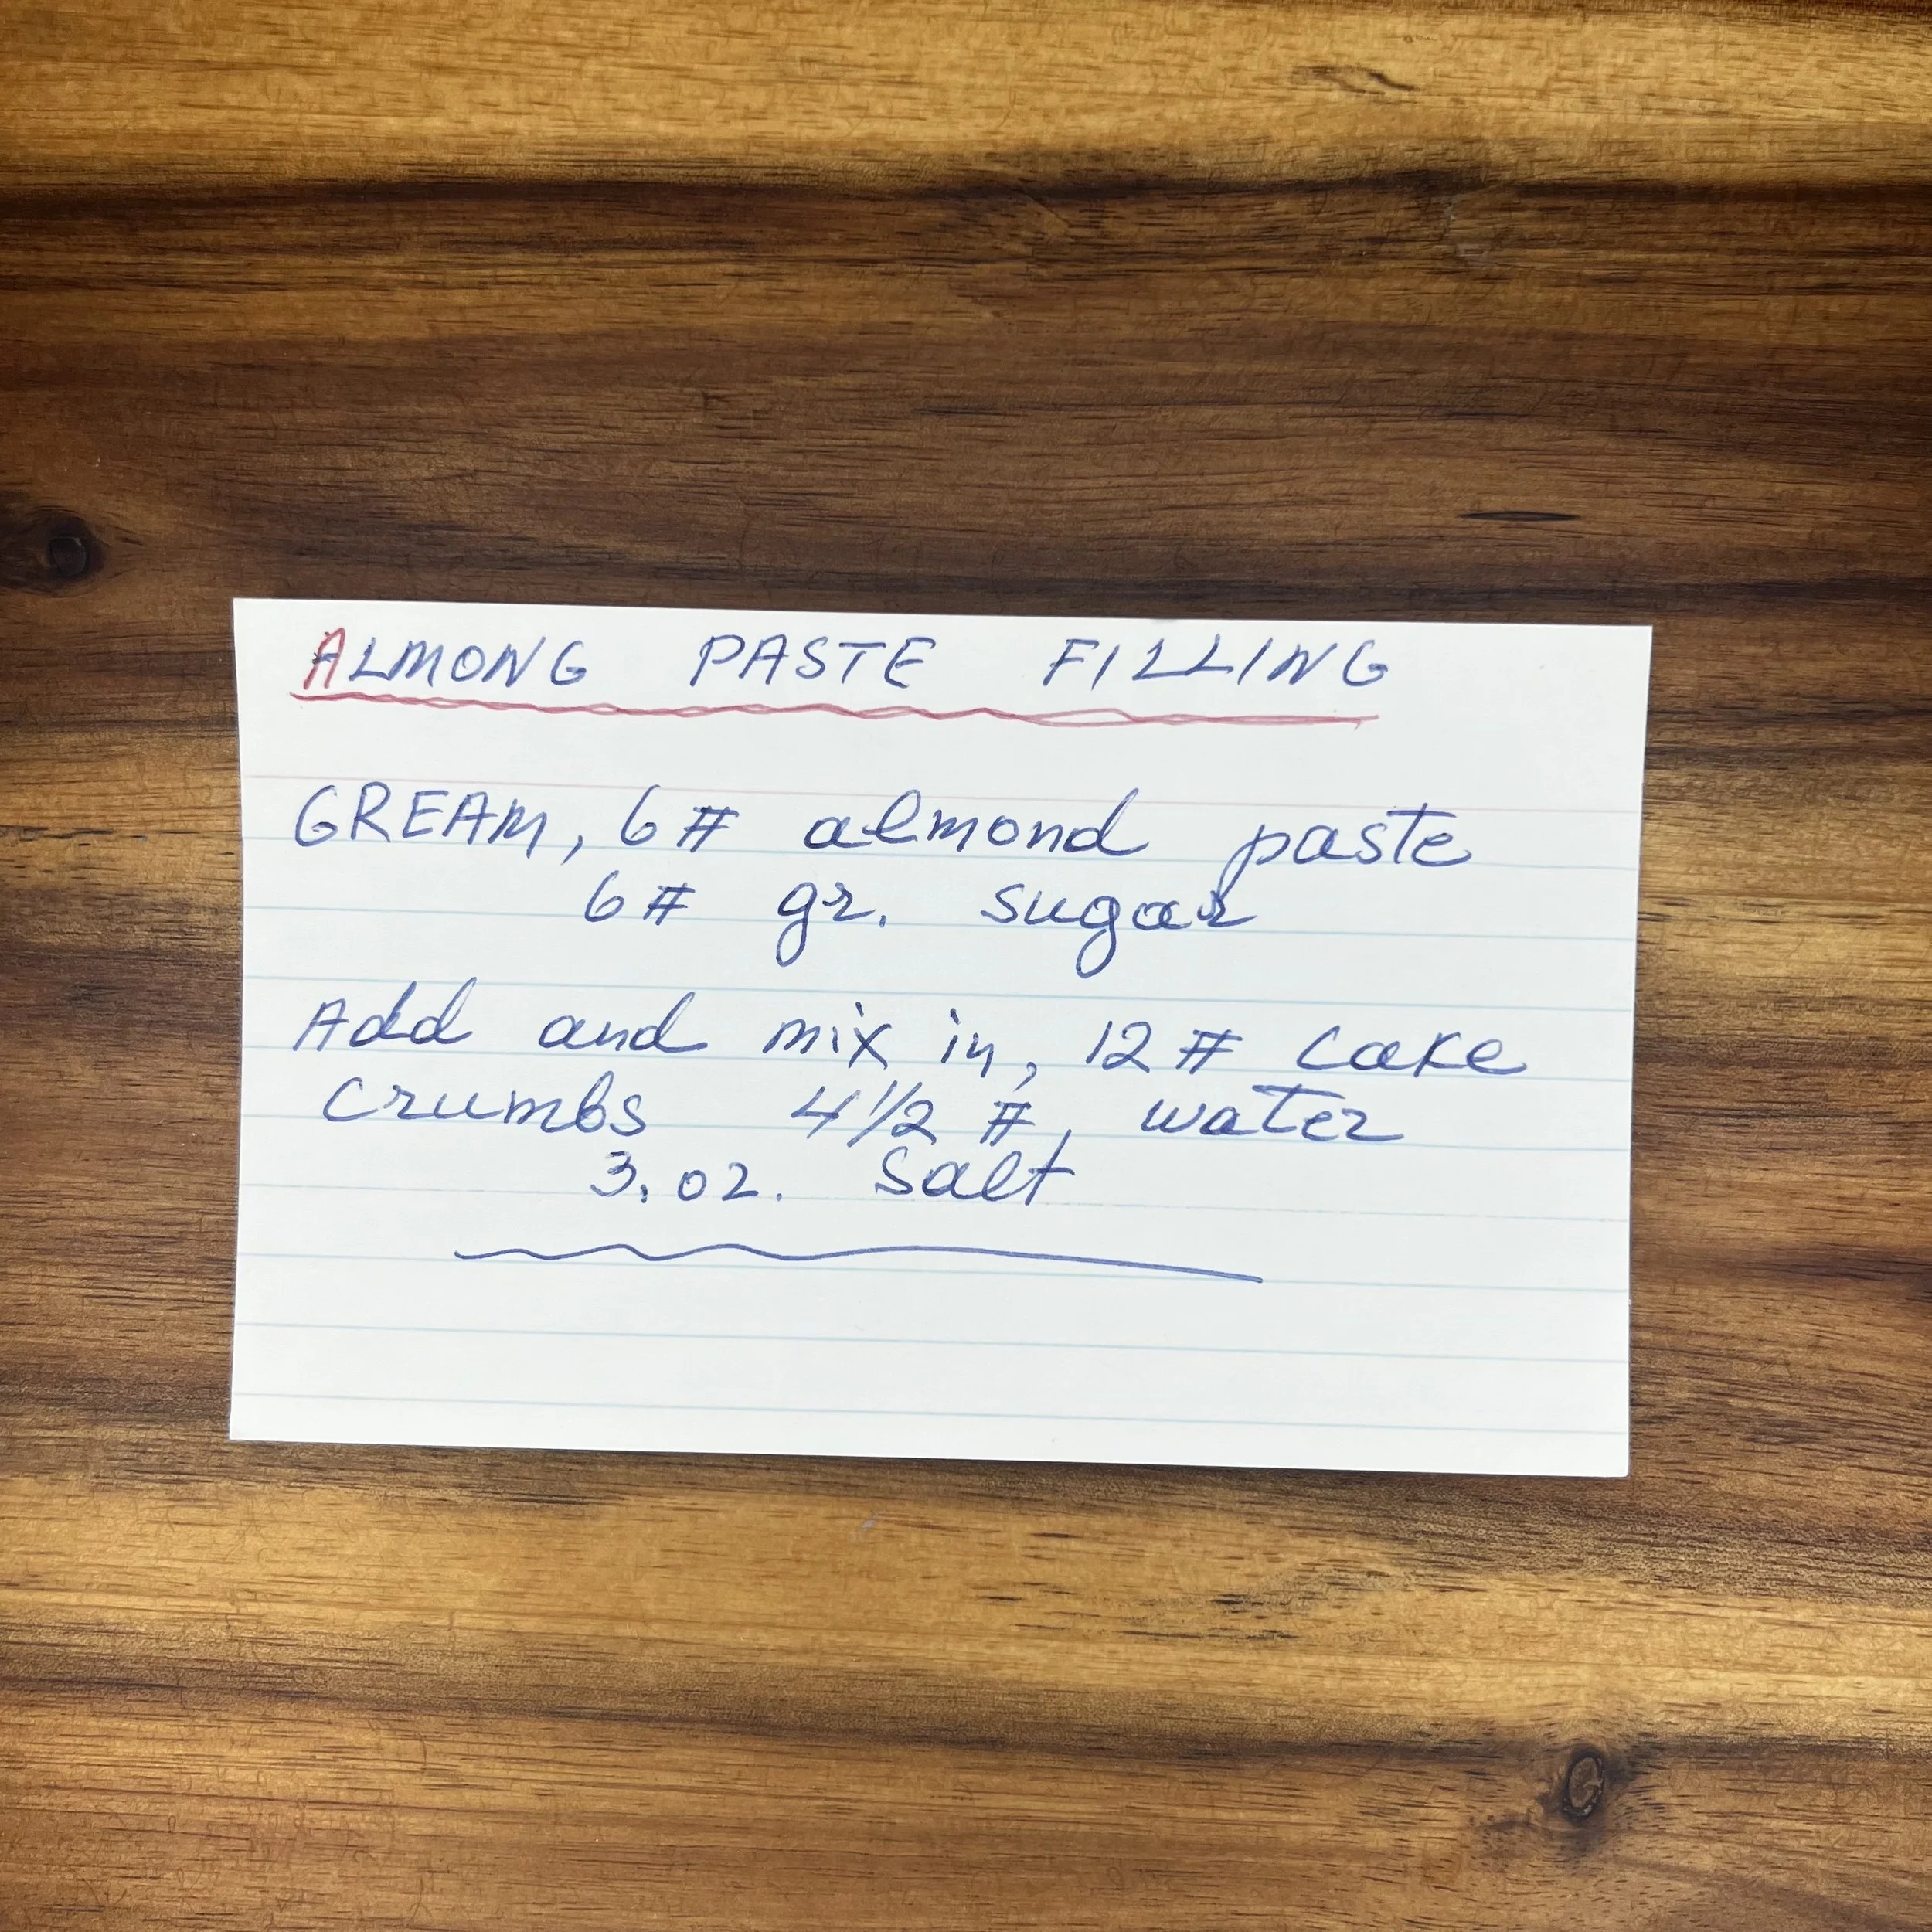 ALMONG PASTE FILLING
GREAM, 6# almond paste
6# gr. sugar
Add and mix in, 12# cake
crumbs 4 1/2 #, water
3, oz. Salt